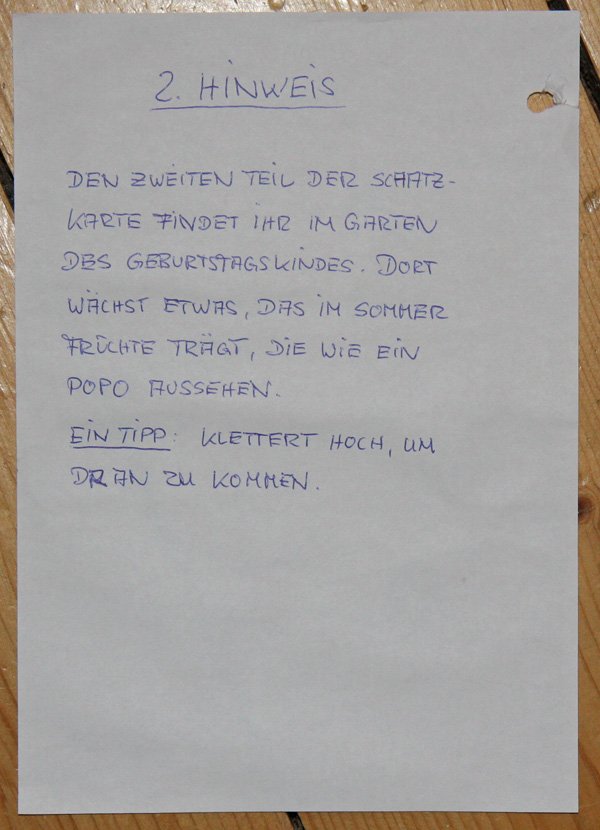 2. HINWEIS
DEN ZWEITEN TEIL DER SCHATZ-
KARTE FINDET IHR IM GARTEN
DES GEBURTSTAGSKINDES. DORT
WÄCHST ETWAS, DAS IM SOMMER
FRÜCHTE TRÄGT, DIE WIE EIN
POPO AUSSEHEN.
EIN TIPP: KLETTERT HOCH, UM
DRAN ZU KOMMEN.